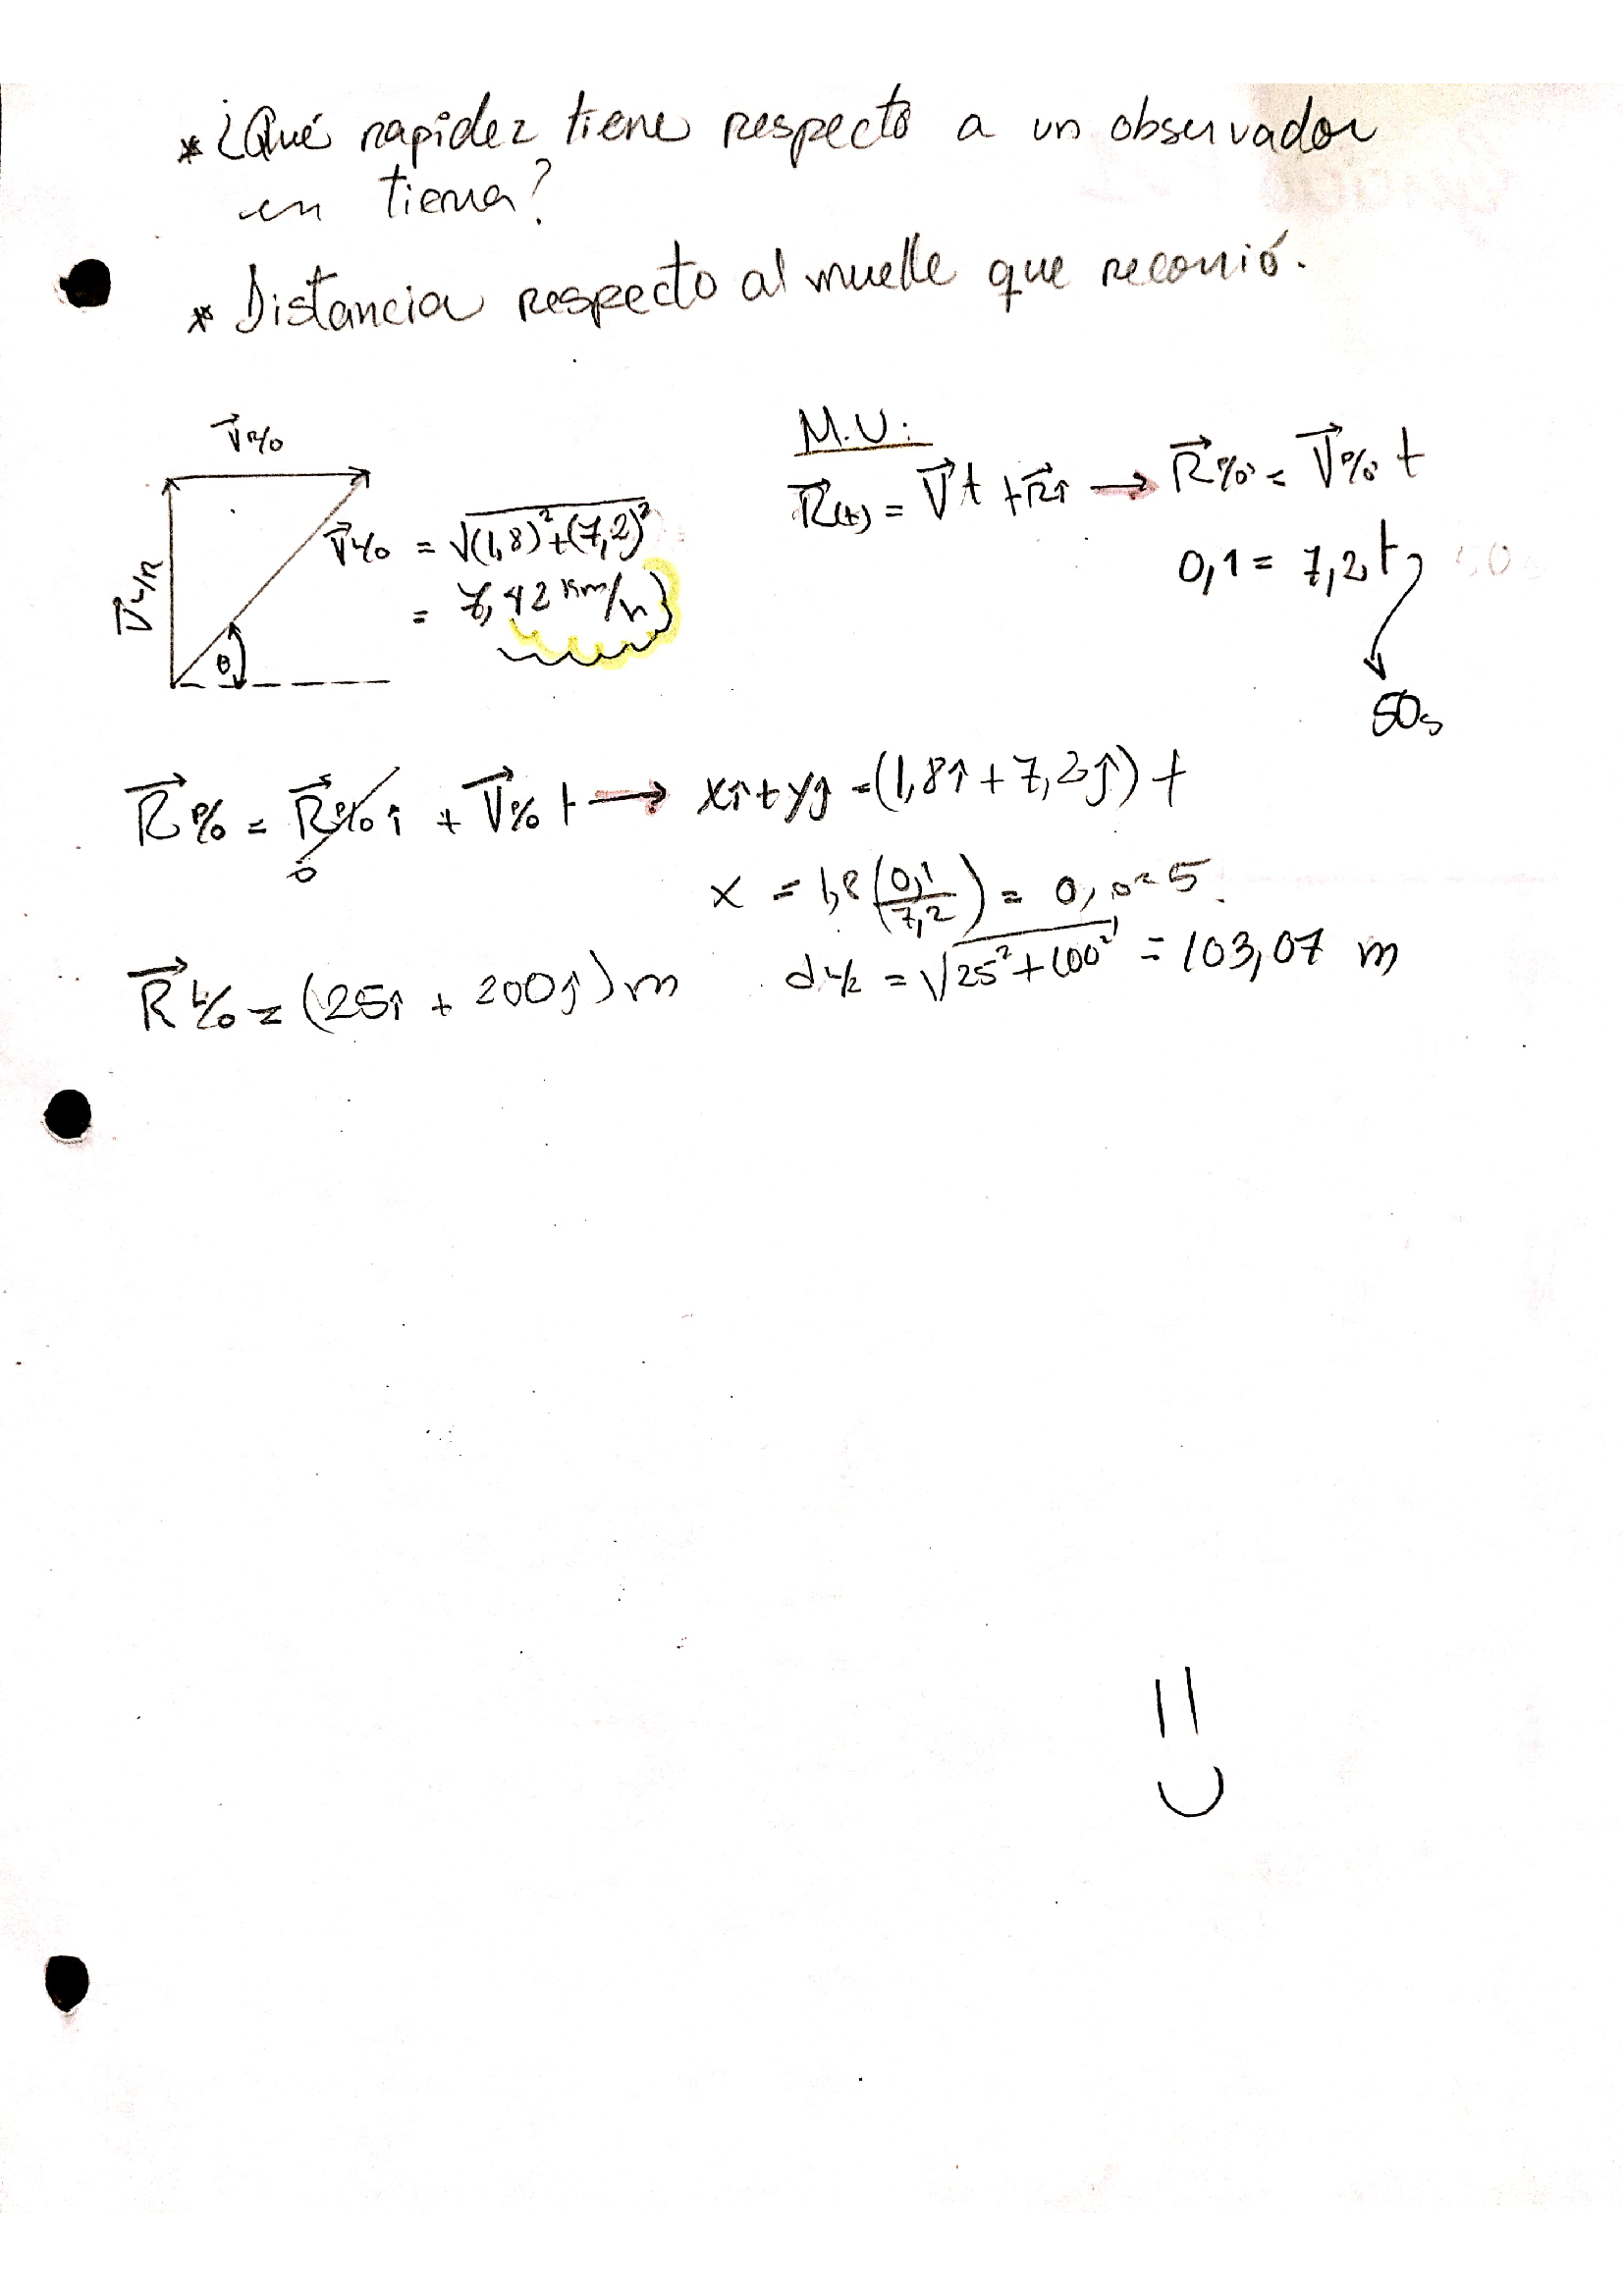 * ¿Qué rapidez tiene respecto a un observador
en tierra?
* Distancia respecto al muelle que recorrió.
V⃗ R/O
V⃗ L/R
θ
V⃗ L/O = √((1,8)² + (7,2)²)
= 7,42 Km/h
M.U:
R⃗(t) = V⃗t + R⃗i → R⃗ P/O' = V⃗ P/O' t
0,1 = 7,2t
50s
R⃗ P/O = R⃗ P/O i + V⃗ P/O t → xî + yĵ = (1,8î + 7,2ĵ) t
0
x = 1,8 (0,1/7,2) = 0,025
R⃗ L/O = (25î + 200ĵ) m
d = √(25² + 100²) = 103,07 m